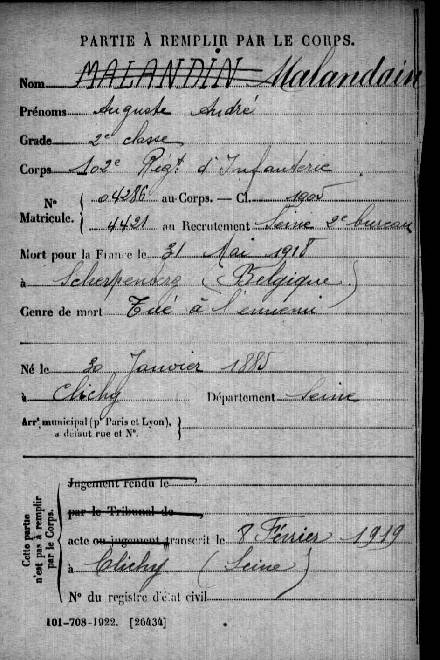 PARTIE À REMPLIR PAR LE CORPS.
Nom MALANDIN Malandain
Prénoms Auguste André
Grade 2e classe
Corps 102e Regt d'Infanterie
N° Matricule. { 04286 au Corps. — Cl. 1905
4421 au Recrutement Seine 2e bureau
Mort pour la France le 31 Mai 1918
à Scherpenberg (Belgique)
Genre de mort Tué à l'ennemi
Né le 30 Janvier 1885
à Clichy Département Seine
Arrt municipal (pr Paris et Lyon), à défaut rue et N°. }
Cette partie n'est pas à remplir par le Corps.
Jugement rendu le
par le Tribunal de
acte ou jugement transcrit le 8 Février 1919
à Clichy (Seine)
N° du registre d'état civil
101-708-1922. [26434]